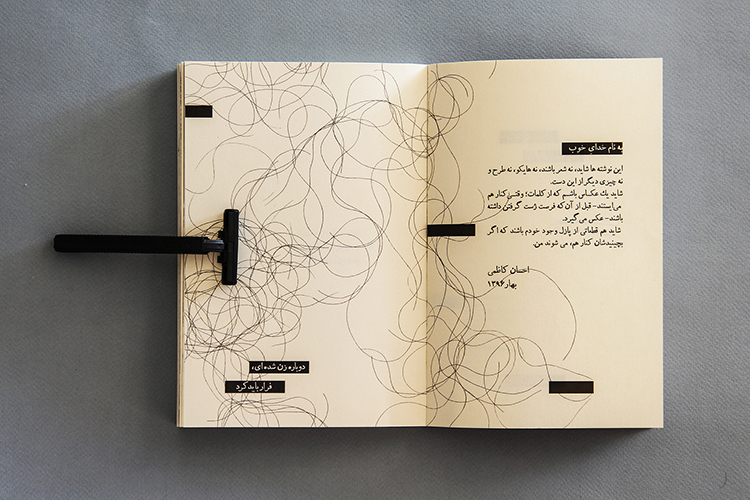 به نام خدای خوب
این نوشته ها شاید، نه شعر باشند، نه هایکو، نه طرح و
نه چیزی دیگر از این دست.
شاید یك عکاسی باشم که از کلمات؛ وقتی کنار هم
می‌ایستند- قبل از آن‌که فرصت ژست گرفتن داشته
باشند- عکس می‌گیرد.
شاید هم قطعاتی از پازل وجود خودم باشند که اگر
بچینیدشان کنار هم، می شوند من.
احسان کاظمی
بهار ۱۳۹۶
دوباره زن شده ای،
فرار باید کرد